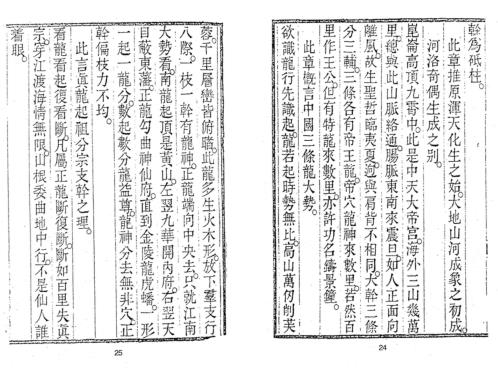 幹為砥柱。
此章推原渾天化生之始。大地山河成象之初。成
河洛奇偶生成之別。
崑崙高頂九霄中。此是中天大帝宮。海外三山幾萬
里。總與此山脈絡通。腸脈東南來震旦。如人正面向
離風。故生聖哲臨夷夏。迥與肩背不相同。大幹三條
分三輔。三條各有帝王龍。帝穴龍神來數里。若然百
里作王公。但有特龍來數里。亦許功名鑄景鐘。
此章概言中國三條龍大勢。
欲識龍行先識起。龍若起時勢無比。高山萬仞削芙
24
蓉。千里層巒皆俯職。此龍多生火木形。放下羣支行
八際。一枝一幹有龍神。正龍端向中央去。只就江南
大勢看。南龍起頂是黃山。左翌九華開內府。右翌天
目蔽東藩。正龍勾曲神仙府。直到金陵龍虎蟠。一形
一起一龍分。數起數分龍益尊。龍神分去無非穴。正
幹偏枝力不均。
此言真龍起祖分宗支幹之理。
看龍看起復看斷。凡屬正龍斷復斷。斷如百里失真
宗。穿江渡海情無限。山根委曲地中行。不是仙人誰
着眼。
25